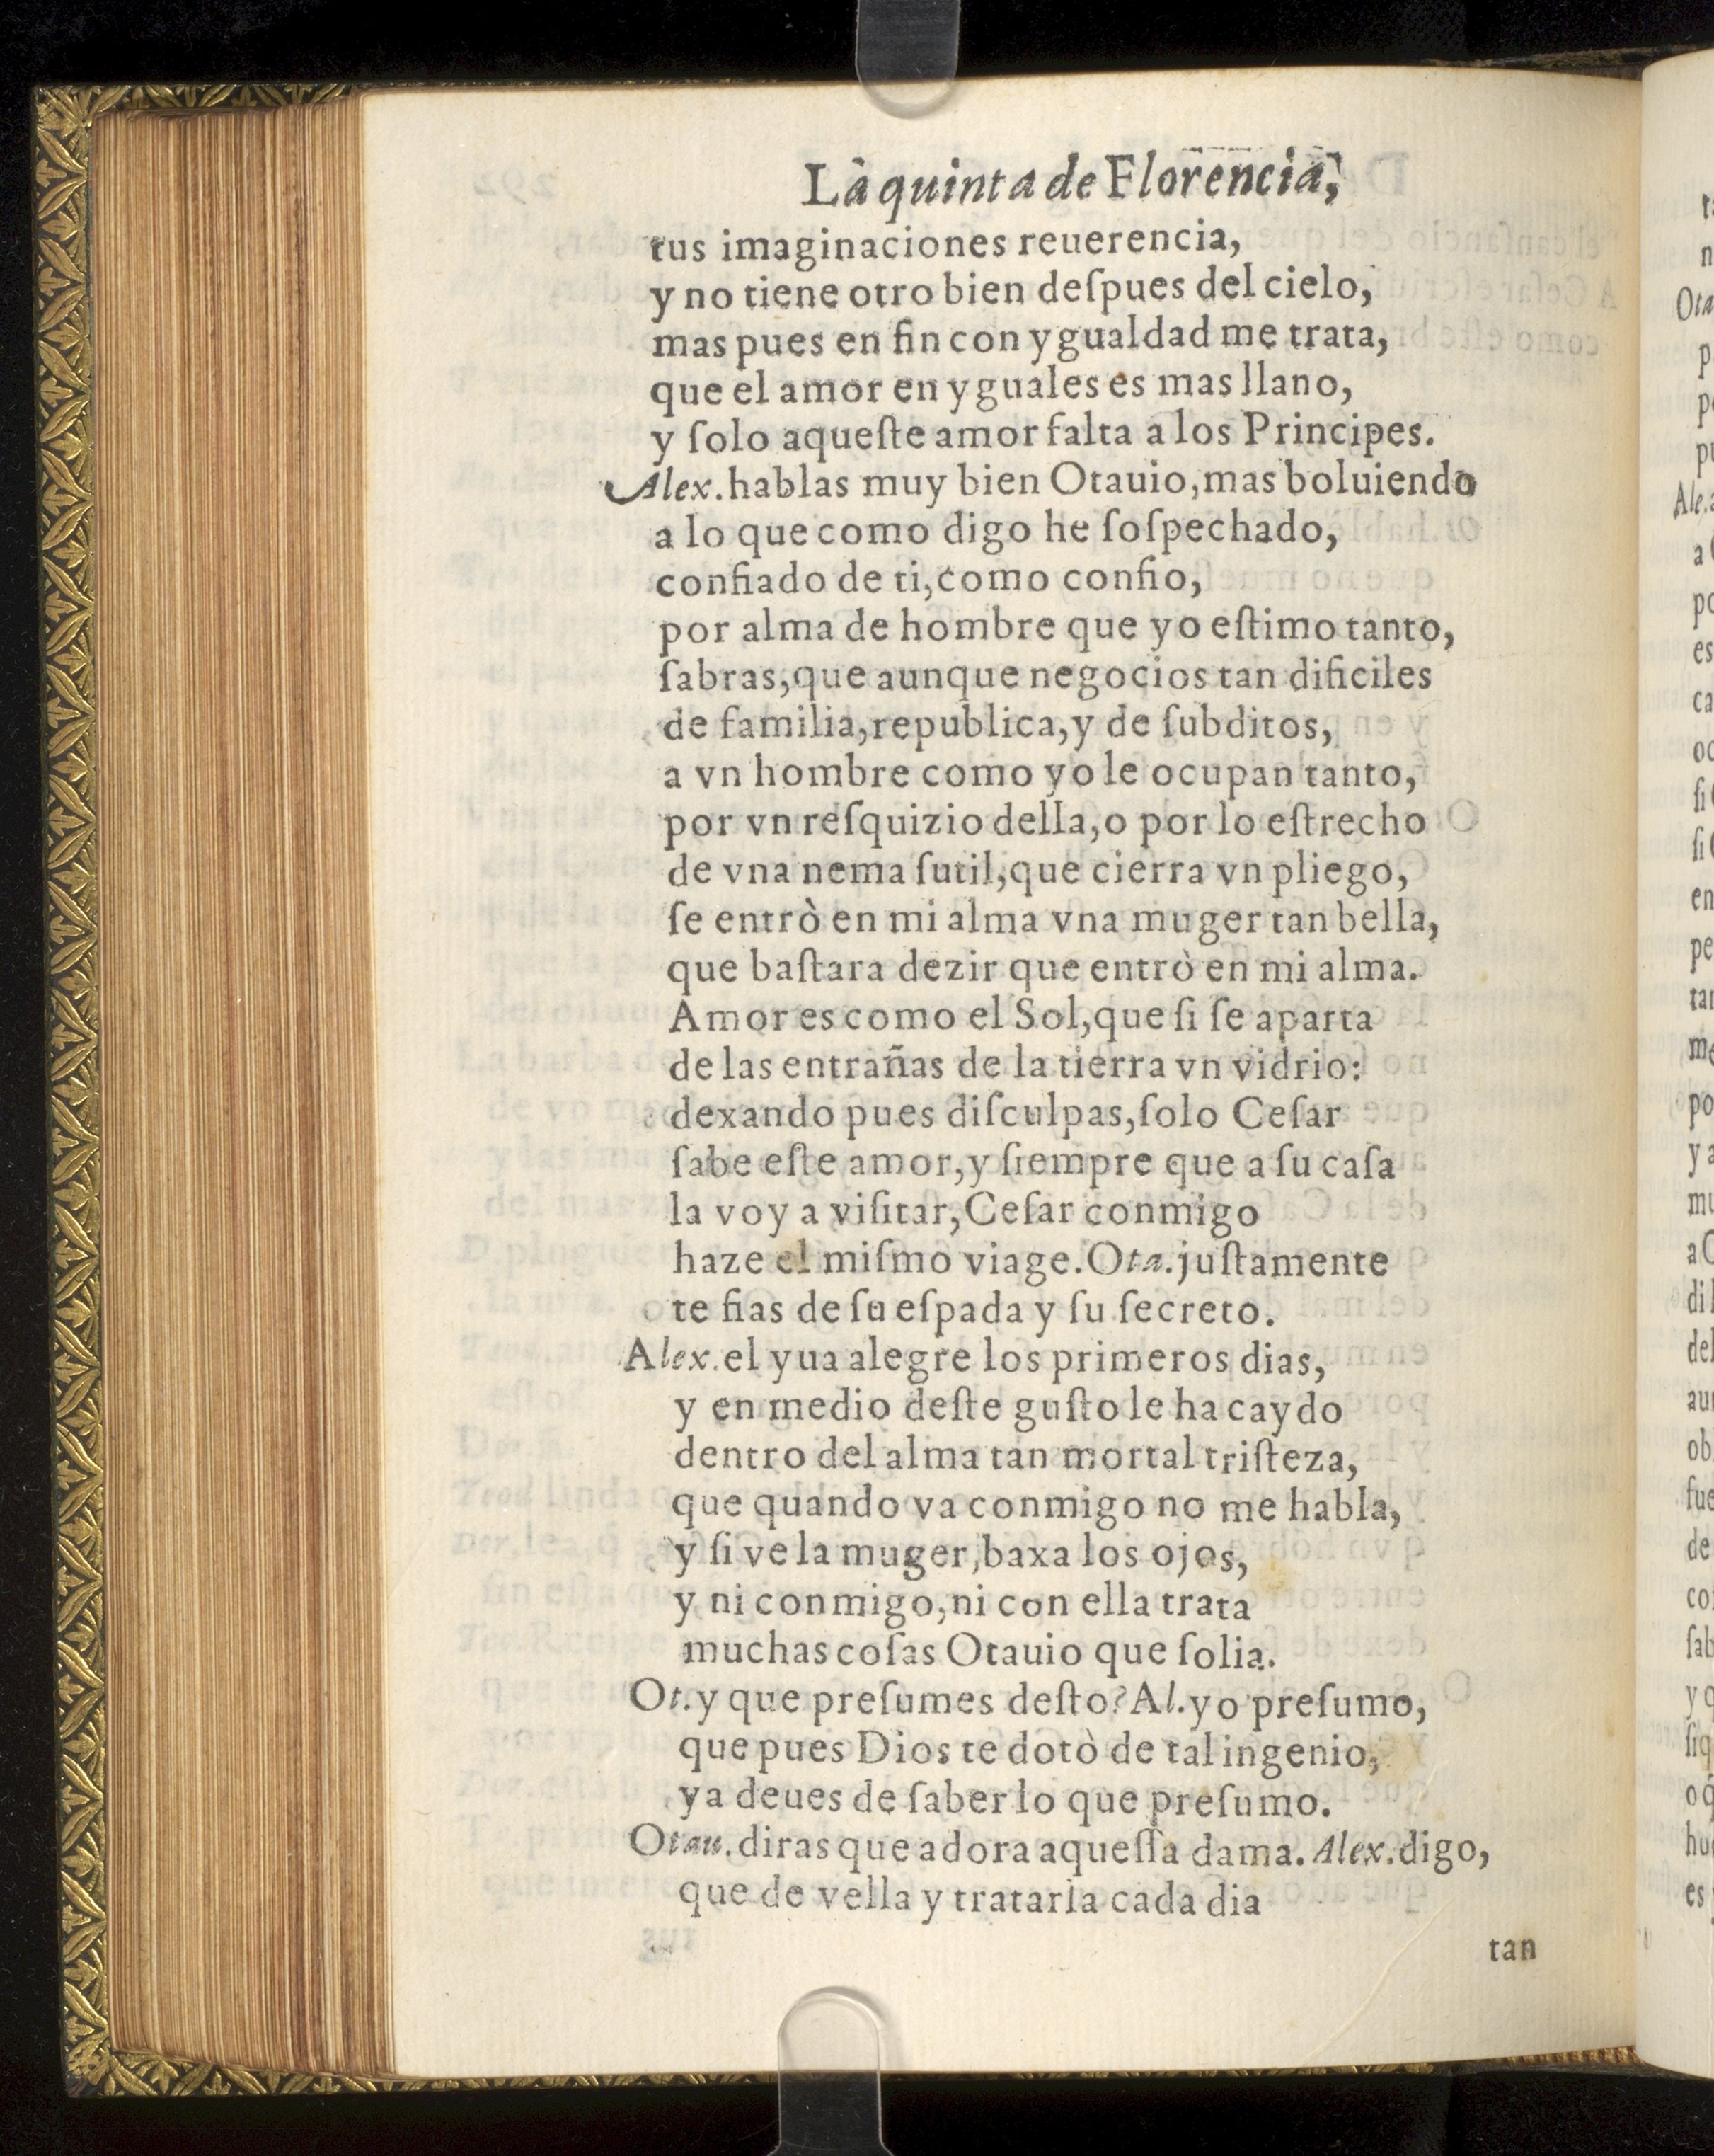 La quinta de Florencia,
tus imaginaciones reuerencia,
y no tiene otro bien deſpues del cielo,
mas pues en fin con ygualdad me trata,
que el amor en yguales es mas llano,
y ſolo aqueſte amor falta a los Principes.
Alex. hablas muy bien Otauio, mas boluiendo
a lo que como digo he ſoſpechado,
confiado de ti, como confio,
por alma de hombre que yo eſtimo tanto,
ſabras, que aunque negocios tan dificiles
de familia, republica, y de ſubditos,
a vn hombre como yo le ocupan tanto,
por vn reſquizio della, o por lo eſtrecho
de vna nema ſutil, que cierra vn pliego,
ſe entrò en mi alma vna muger tan bella,
que baſtara dezir que entrò en mi alma.
Amor es como el Sol, que ſi ſe aparta
de las entrañas de la tierra vn vidrio:
dexando pues diſculpas, ſolo Ceſar
ſabe eſte amor, y ſiempre que a ſu caſa
la voy a viſitar, Ceſar conmigo
haze el miſmo viage. Ota. juſtamente
te fias de ſu eſpada y ſu ſecreto.
Alex. el yua alegre los primeros dias,
y en medio deſte guſto le ha caydo
dentro del alma tan mortal triſteza,
que quando va conmigo no me habla,
y ſi ve la muger, baxa los ojos,
y ni conmigo, ni con ella trata
muchas coſas Otauio que ſolia.
Ot. y que preſumes deſto? Al. yo preſumo,
que pues Dios te dotò de tal ingenio,
ya deues de ſaber lo que preſumo.
Otau. diras que adora aqueſſa dama. Alex. digo,
que de vella y tratarla cada dia
tan